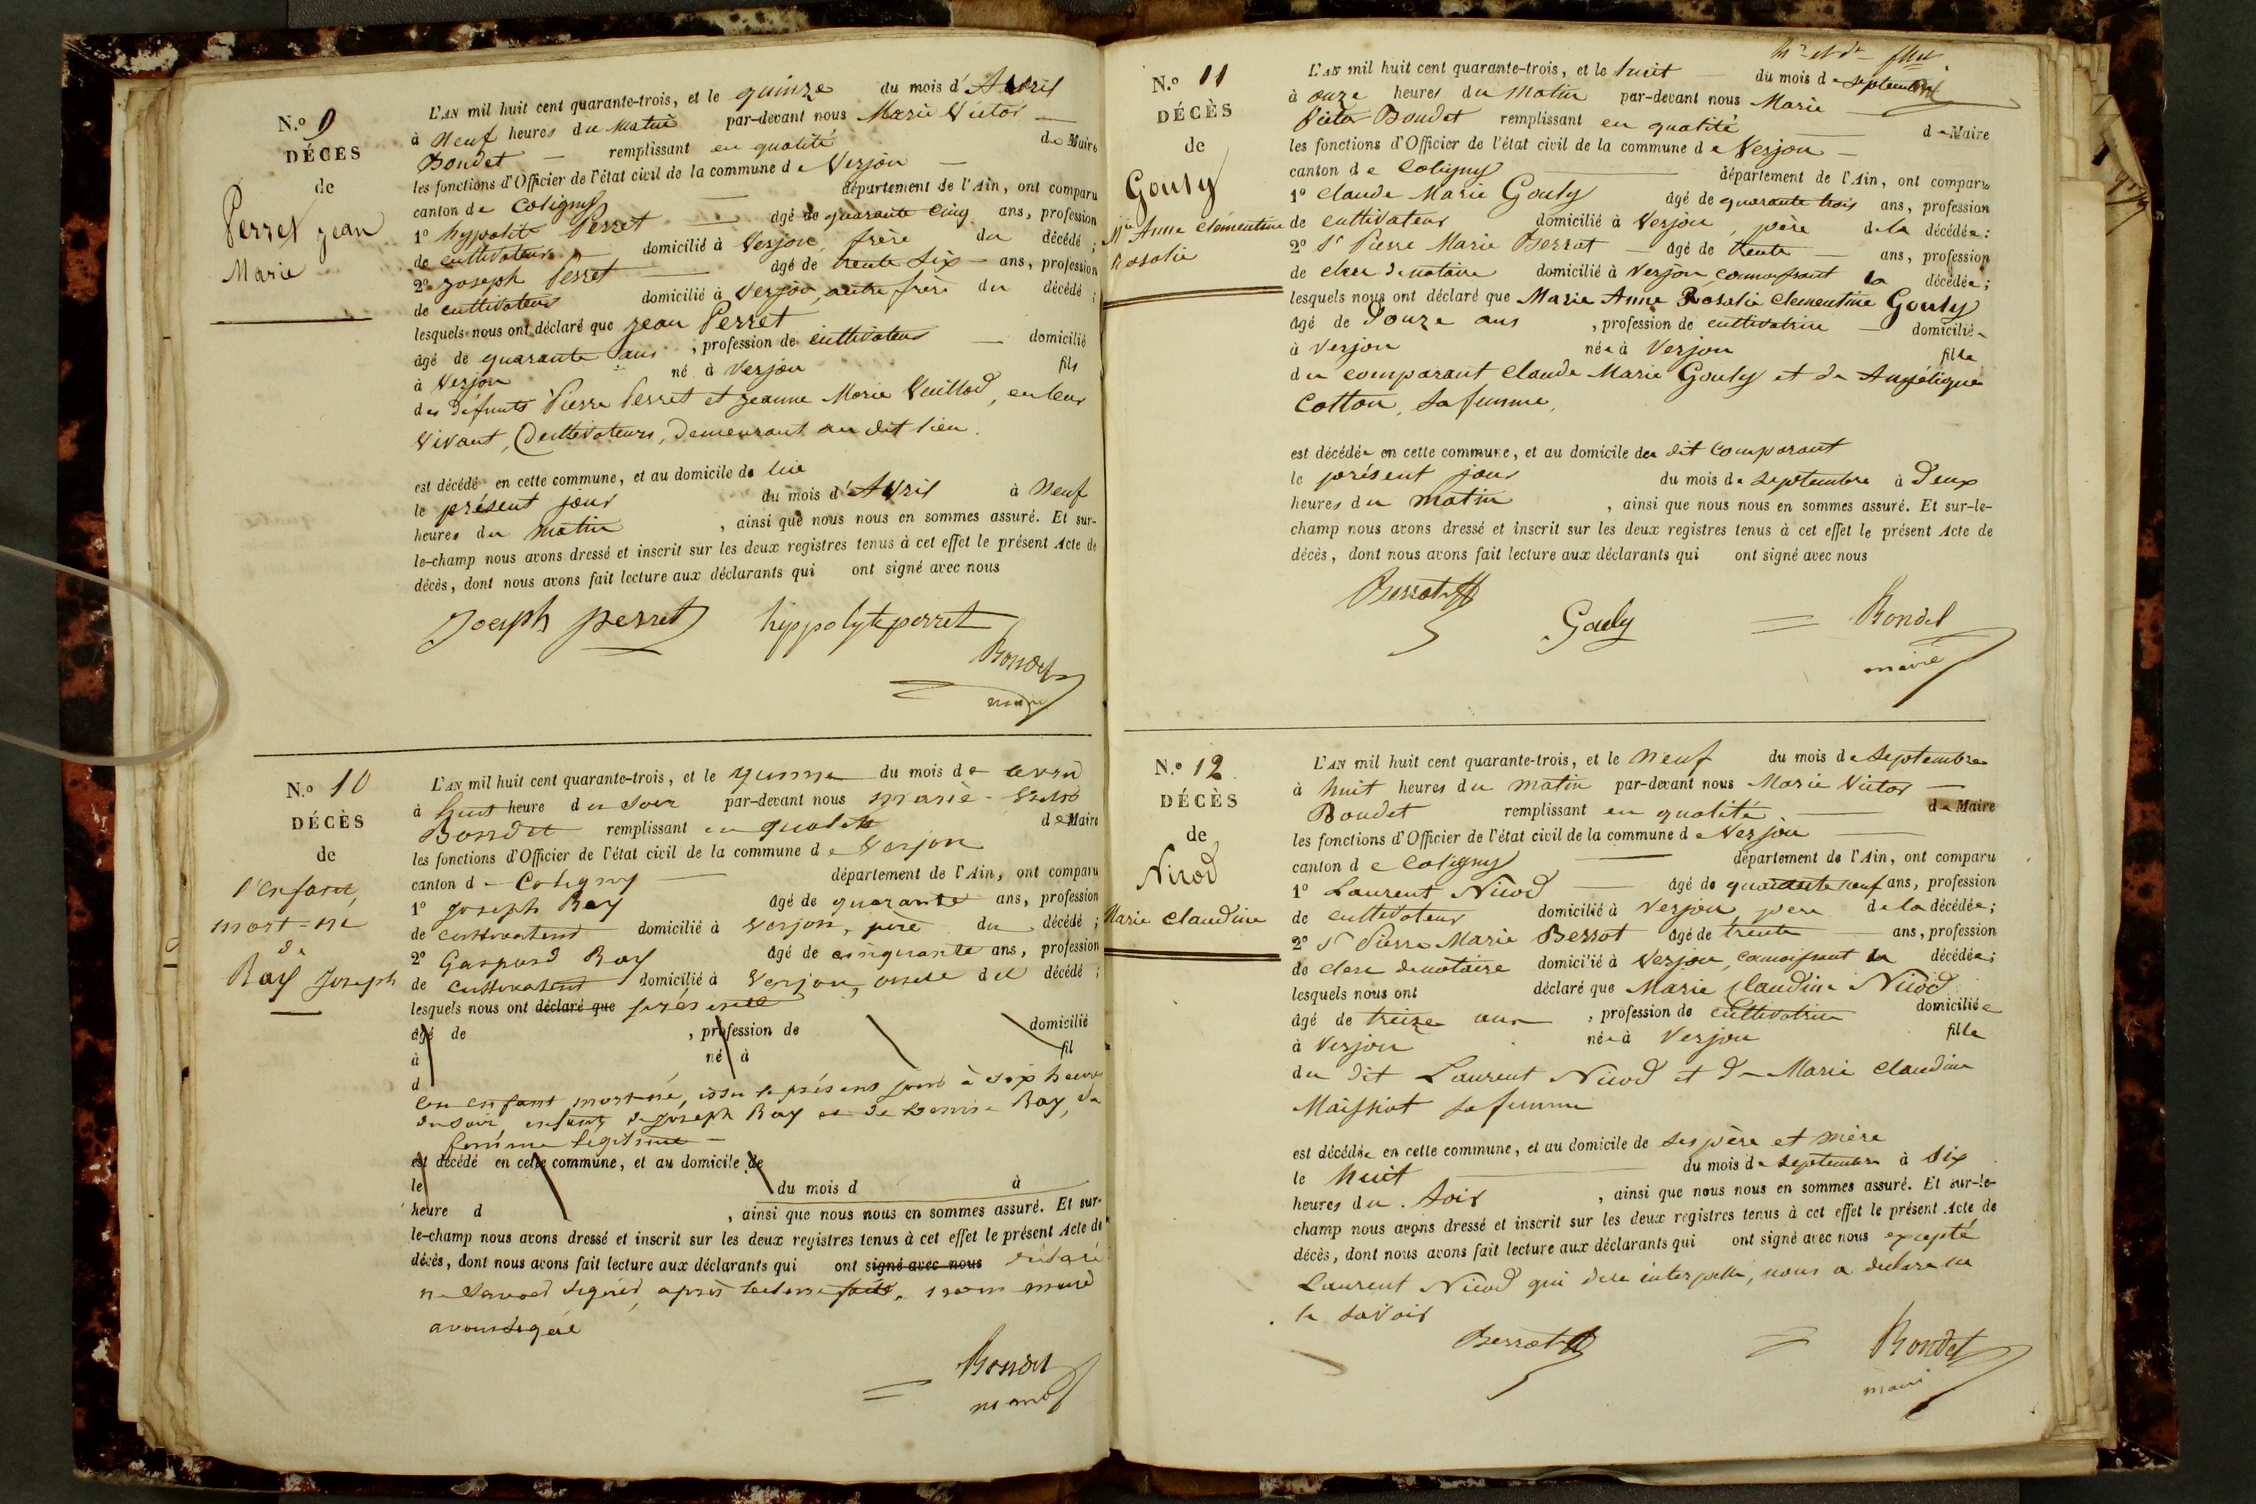 N.º 9
DÉCÈS
de
Perret Jean
Marie
L'AN mil huit cent quarante-trois, et le quinze du mois d'Avril
à Neuf heures du Matin par-devant nous Marie Victor
Bondet remplissant en qualité de Maire
les fonctions d'Officier de l'état civil de la commune de Verjon
canton de Coligny département de l'Ain, ont comparu
1º hypolite Perret âgé de quarante cinq ans, profession
de cultivateur domicilié à Verjon, frère du décédé ;
2º Joseph Perret âgé de trente six ans, profession
de cultivateur domicilié à Verjon, autre frere du décédé ;
lesquels nous ont déclaré que Jean Perret
âgé de quarante ans , profession de cultivateur domicilié
à Verjon né à Verjon fils
des défunts Pierre Perret et Jeanne Marie Vuillod, en leur
vivant, Cultivateurs, demeurant au dit lieu.
est décédé en cette commune, et au domicile de lui
le présent jour du mois d'Avril à Neuf
heures du matin , ainsi que nous nous en sommes assuré. Et sur-
le-champ nous avons dressé et inscrit sur les deux registres tenus à cet effet le présent Acte de
décès, dont nous avons fait lecture aux déclarants qui ont signé avec nous
Joseph perret hyppolyte perret
Bondet
maire
N.º 10
DÉCÈS
de
l'enfant
mort-né
de
Ray Joseph
L'AN mil huit cent quarante-trois, et le quinze du mois de avril
à huit heure du soir par-devant nous marie-victor
Bondet remplissant en qualité de Maire
les fonctions d'Officier de l'état civil de la commune de Verjon
canton de Coligny département de l'Ain, ont comparu
1º Joseph Ray âgé de quarante ans, profession
de cultivateur domicilié à Verjon, père du décédé ;
2º Gaspard Ray âgé de cinquante ans, profession
de cultivateur domicilié à Verjon, oncle du décédé ;
lesquels nous ont déclaré que présenté
âgé de , profession de domicilié
à né à fil
d
un enfant mort-né, issu le présent jour à six heures
du soir, enfant de Joseph Ray et de Denise Ray, sa
femme légitime
est décédé en cette commune, et au domicile de
le du mois d à
heure d , ainsi que nous nous en sommes assuré. Et sur-
le-champ nous avons dressé et inscrit sur les deux registres tenus à cet effet le présent Acte de
décès, dont nous avons fait lecture aux déclarants qui ont signé avec nous déclaré
ne savoir signer, après lecture faite, nous maire
avons signé
Bondet
maire
N.º 11
DÉCÈS
de
Gouly
Mie Anne Clémentine
Rosalie
L'AN mil huit cent quarante-trois, et le huit du mois de septembre
à onze heures du matin par-devant nous Marie
Victor Bondet remplissant en qualité de Maire
les fonctions d'Officier de l'état civil de la commune de Verjon
canton de Coligny département de l'Ain, ont comparu
1º Claude Marie Gouly âgé de quarante trois ans, profession
de cultivateur domicilié à Verjon, père de la décédée :
2º Sr Pierre Marie Berrot âgé de trente ans, profession
de clerc de notaire domicilié à Verjon, connaissant la décédée ;
lesquels nous ont déclaré que Marie Anne Rosalie Clementine Gouly
âgé de Douze ans , profession de cultivatrice domiciliée
à Verjon née à Verjon fille
du comparant Claude Marie Gouly et de Angélique
Cotton, sa femme,
est décédée en cette commune, et au domicile du dit comparant
le présent jour du mois de septembre à Deux
heures du matin , ainsi que nous nous en sommes assuré. Et sur-le-
champ nous avons dressé et inscrit sur les deux registres tenus à cet effet le présent Acte de
décès, dont nous avons fait lecture aux déclarants qui ont signé avec nous
Berrot Gouly Bondet
maire
N.º 12
DÉCÈS
de
Nicod
Marie Claudine
L'AN mil huit cent quarante-trois, et le Neuf du mois de septembre
à huit heures du matin par-devant nous Marie Victor
Bondet remplissant en qualité de Maire
les fonctions d'Officier de l'état civil de la commune de Verjon
canton de Coligny département de l'Ain, ont comparu
1º Laurent Nicod âgé de quarante neuf ans, profession
de cultivateur domicilié à Verjon, pere de la décédée ;
2º Sr Pierre Marie Berrot âgé de trente ans, profession
de clerc de notaire domicilié à Verjon, connaissant la décédée ;
lesquels nous ont déclaré que Marie Claudine Nicod
âgé de treize ans , profession de Cultivatrice domiciliée
à Verjon née à Verjon fille
du dit Laurent Nicod et de Marie Claudine
Maissiat sa femme
est décédée en cette commune, et au domicile de ses père et mère
le huit du mois de septembre à six
heures du soir , ainsi que nous nous en sommes assuré. Et sur-le-
champ nous avons dressé et inscrit sur les deux registres tenus à cet effet le présent Acte de
décès, dont nous avons fait lecture aux déclarants qui ont signé avec nous excepté
Laurent Nicod qui de ce interpellé, nous a déclaré ne
le savoir
Berrot Bondet
maire